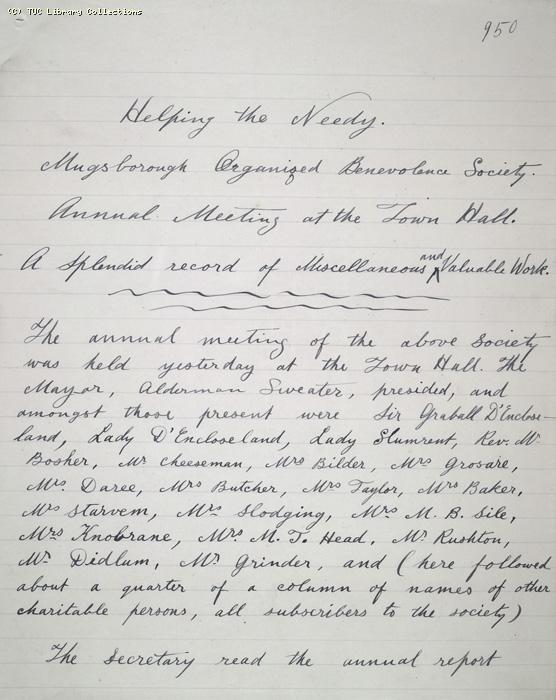 (C) TUC Library Collections
950
Helping the Needy.
Mugsborough Organized Benevolence Society.
Annual Meeting at the Town Hall.
A splendid record of Miscellaneous and Valuable Work.
The annual meeting of the above Society
was held yesterday at the Town Hall. The
Mayor, Alderman Sweater, presided, and
amongst those present were Sir Graball D'Enclose-
land, Lady D'Encloseland, Lady Slumrent, Rev. Mr
Bosher, Mr Cheeseman, Mrs Bilder, Mrs Grosare,
Mrs. Daree, Mrs Butcher, Mrs Taylor, Mrs Baker,
Mrs Starvem, Mrs Slodging, Mrs M. B. Sile,
Mrs Knobrane, Mrs M. T. Head, Mr Rushton,
Mr Didlum, Mr Grinder, and (here followed
about a quarter of a column of names of other
charitable persons, all subscribers to the society)
The Secretary read the annual report